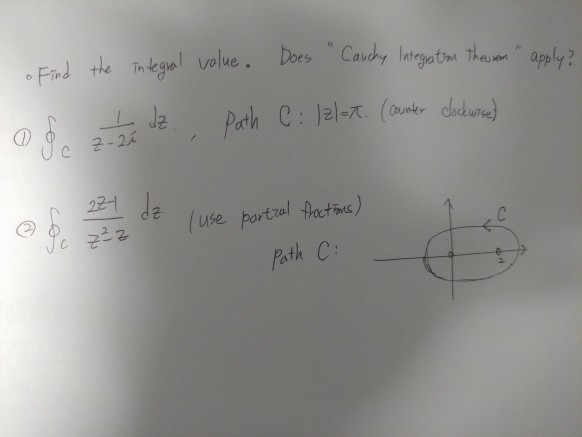 o Find the integral value. Does "Cauchy Integration Theorem" apply?
① ∮_C 1/(z-2i) dz. , Path C: |z|=π. (Counter clockwise)
② ∮_C (2z-1)/(z²-z) dz (use partial fractions)
C
Path C:
2